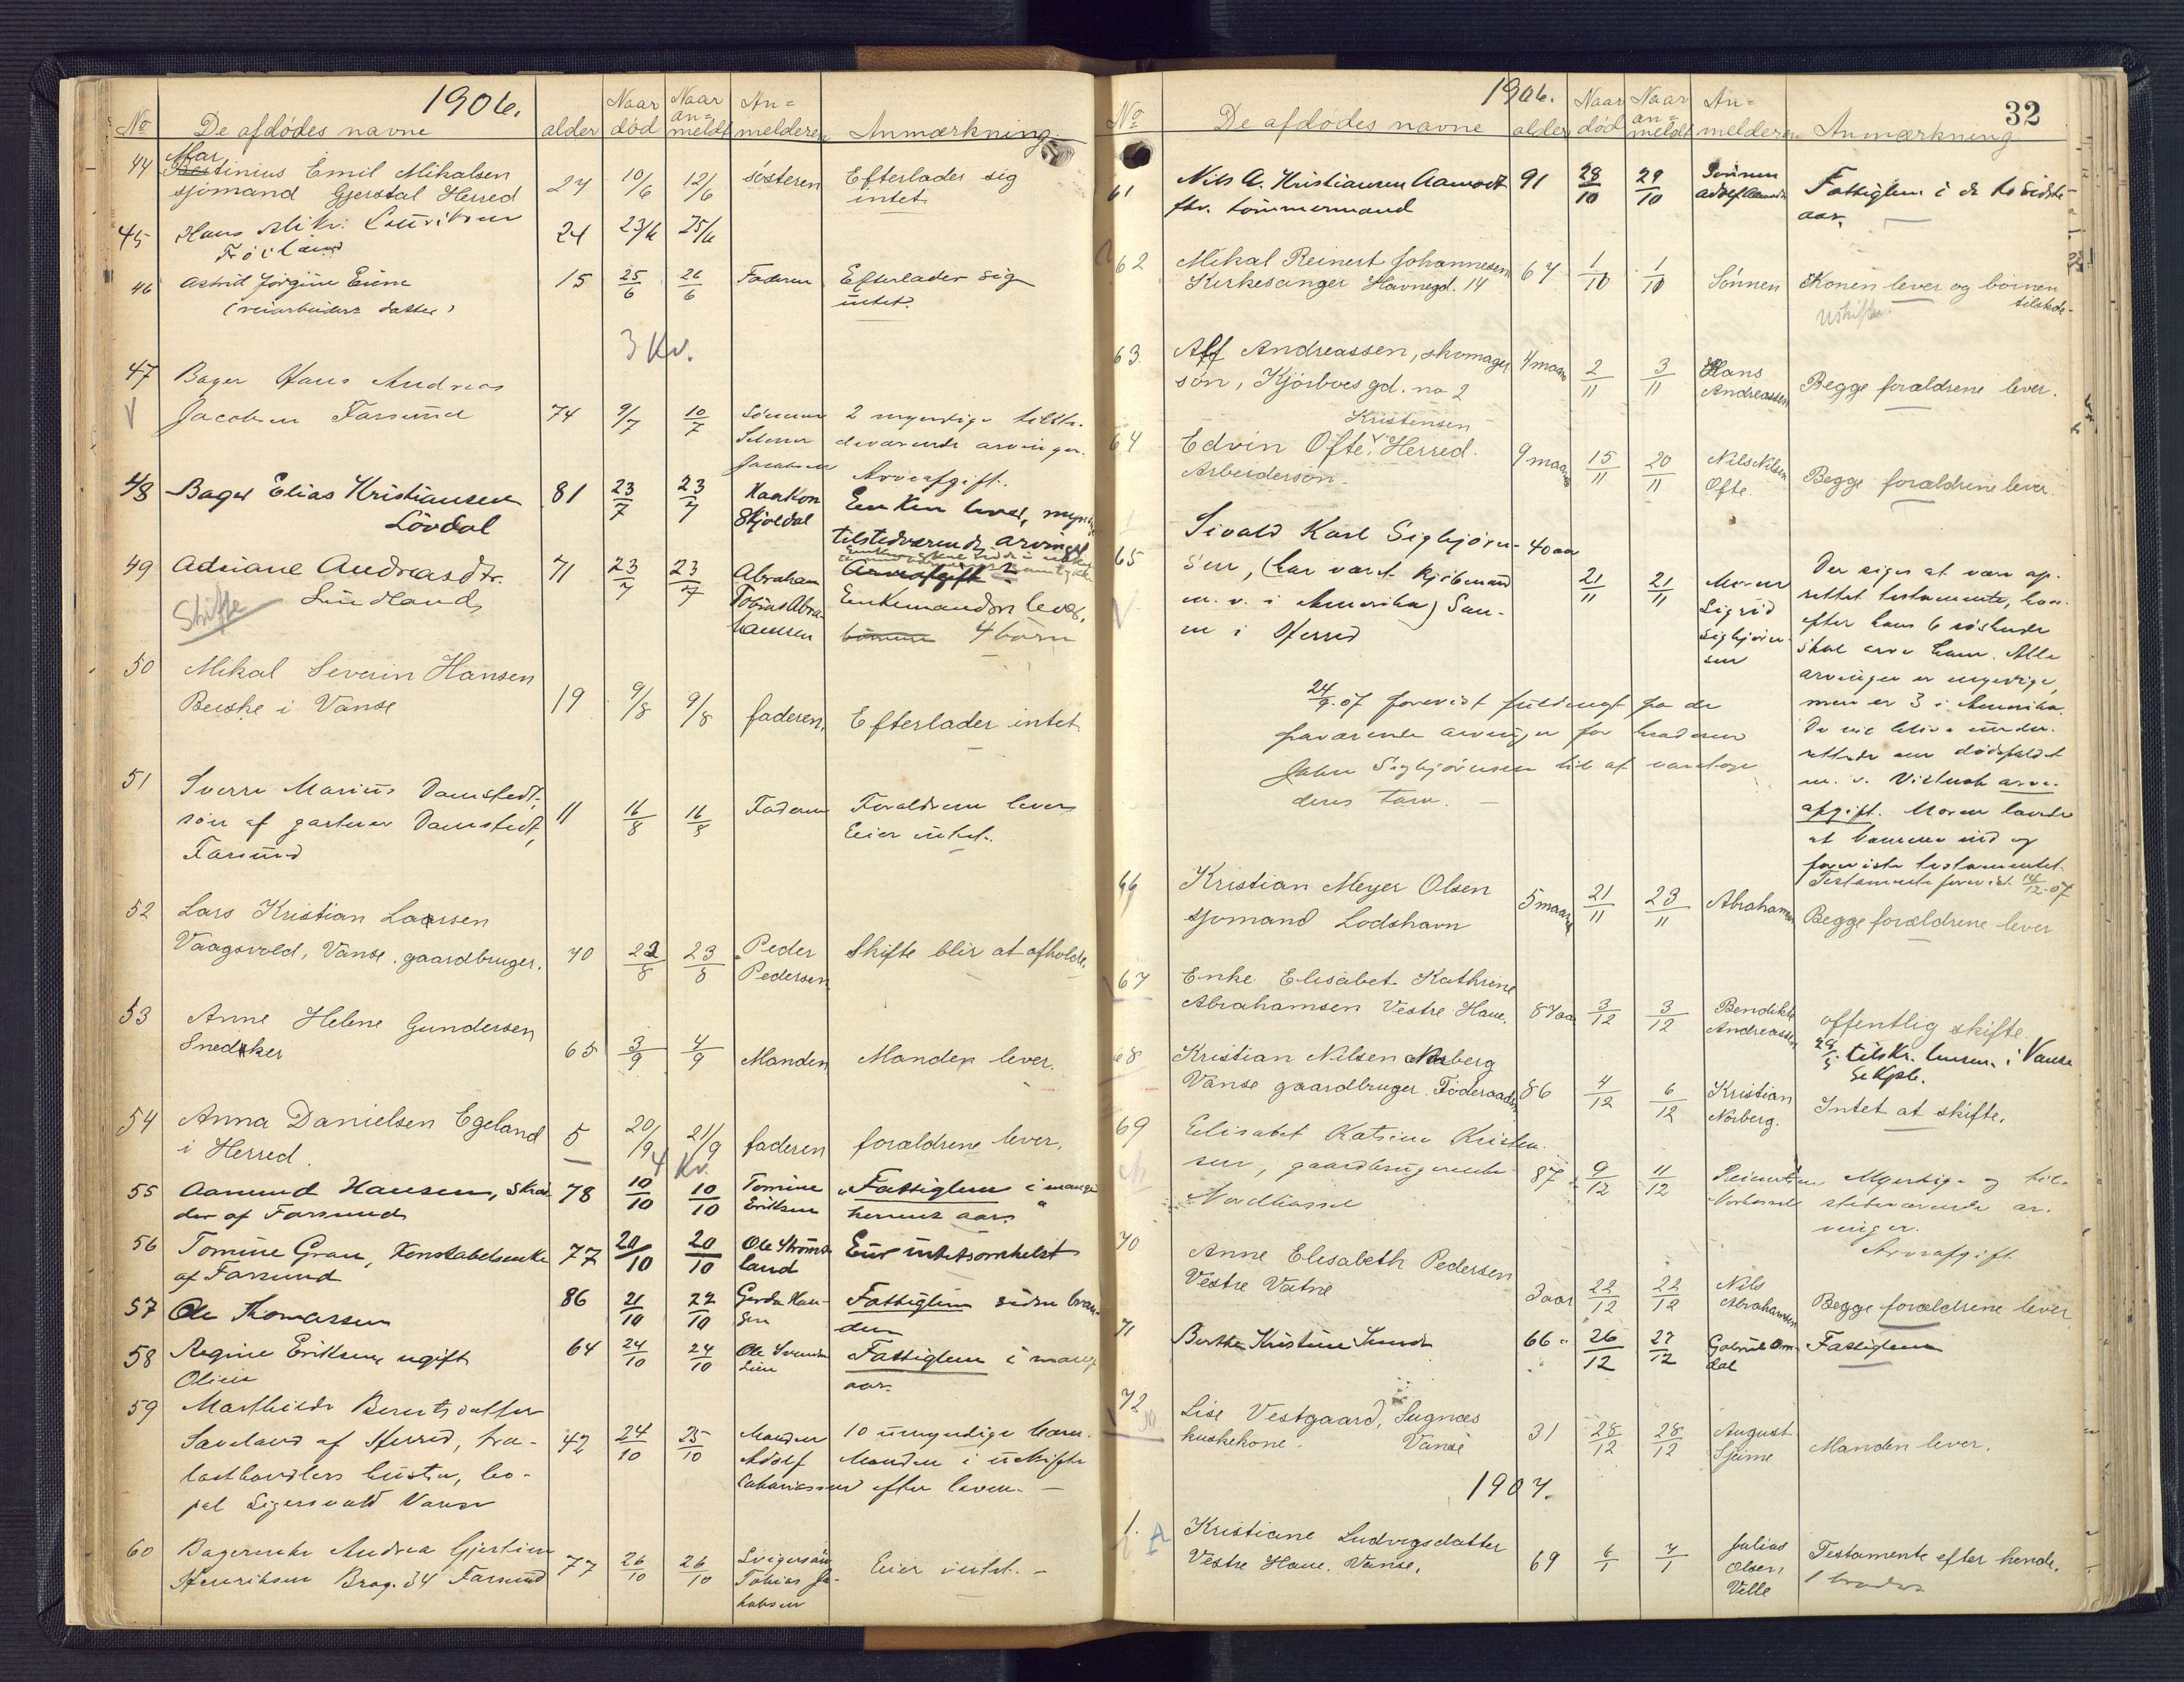 1906.
No De afdødes navne alder Naar død Naar anmeldt Anmelderen Anmærkning
44 Mar
tinius Emil Mikalsen
sjømand Gjerstal Herred 27 10/6 12/6 søsteren Efterlader sig
intet
45 Hans
24 23/6 25/6
46 Astrid Jørgine
datter) 15 25/6 26/6 Faderen Efterlader sig
intet.
3 Kv.
47 Bager Hans Andreas
Jacobsen Farsund 74 9/7 10/7 Sønnen 2 myndige tilste-
deværende arvinger.
Jacobsen Arveafgift.
48 Bager Elias Kristiansen
Lövdal 81 23/7 23/7 Haakon
Skjoldal Enken lever,
tilstedværende arvinger
Arveafgift
49 Adriane Andreasdtr.
Lindland 71 23/7 23/7 Abraham
Tobias Abra-
hamsen Enkemanden lever,
4 børn
Skifte
50 Mikal Severin Hansen
Briske i Vanse 19 9/8 9/8 faderen. Efterlader intet
51 Sverre Marius Damstedt,
søn af gartner Damstedt,
Farsund 11 16/8 16/8 Faderen Forældrene lever
Eier intet.
52 Lars Kristian Larsen
Vaagsvold, Vanse. gaardbruger. 70 22/8 23/8 Peder
Pedersen Skifte blir at afholde.
53 Anne Helene Gundersen
Snedker 65 3/9 4/9 Manden Manden lever.
54 Anna Danielsen Egeland
i Herred. 5 20/9 21/9 faderen forældrene lever.
4 Kv.
55 Aanund Hansen, Skræd-
der af Farsund 78 10/10 10/10 Tomine
Eriksen Fattiglem i mange
herrens aar.
56 Tomine Grau, Konstabelenke
af Farsund 77 20/10 20/10 Ole Strøms-
land Eier intetsomhelst
57 Ole Thomassen 86 21/10 22/10 Gerda Han-
sen Fattiglem siden bran-
den
58 Regine Eriksen, ugift
64 24/10 24/10 Ole
Fattiglem i mange
aar.
59 Marthilde Berentsdatter
Saveland af Herred, tra-
lasthandlers hustru, bo-
pæl Vanse 42 24/10 25/10 Manden
Adolf
10 umyndige børn.
Manden i uskifte
efter loven.
60 Bagerenke Andrea Gjertine
Henriksen Brog. 34 Farsund 77 26/10 26/10 Svigersøn
Tobias Ja-
kobsen Eier intet.
32
1906.
No De afdødes navne alder Naar død Naar anmeldt Anmelderen Anmærkning
61 Nils A. Kristiansen Aamodt
fhv. tømmermand 91 28/10 29/10 Sønnen
Adolf Aamodt Fattiglem i de to sidste
aar.
62 Mikal Reinert Johannesen
Kirkesanger Havnegd. 14 67 1/10 1/10 Sønnen Konen lever og børnen
tilstede.
Uskifte.
63. Alf Andreassen, skomager
søn, Kjørboes gd. no 2 4 maan 2/11 3/11 Hans
Andreassen Begge forældrene lever.
64 Kristensen
Edvin Ofte. Herred.
Arbeidersøn. 9 maan 15/11 20/11 Nils Nilsen
Ofte. Begge forældrene lever.
65 Sivald Karl Sigbjørn-
sen, (har været kjøbmand
m. v. i Amerika) Sau-
ne i Herred 40 aar 21/11 21/11 Moren
Sigrid
Sigbjørn-
sen Der siges at være op-
rettet testamente, hvor-
efter hans 6 søskende
skal arve ham. Alle
arvinger er myndige,
men er 3 i Amerika.
De vil blive under-
rettede om dødsfaldet
m. v. Vistnok arve-
afgift. Moren lovede
at komme ind og
forevise testamentet.
Testamente forevist 14/12-07
24/9-07 forevist fuldmagt fra de
fraværende arvinger for broderen
John Sigbjørnsen til at varetage
deres tarv.
66 Kristian Meyer Olsen
sjømand Lodshavn 5 maan 21/11 23/11 Abrahamsen Begge forældrene lever
67 Enke Elisabet Kathrine
Abrahamsen Vestre Haue. 87 aar 3/12 3/12 Bendikte
Andreassen offentlig skifte.
tilskr. lensm. i Vanse
68 Kristian Nilsen Norberg
Vanse gaardbruger. Föderaadsm 86 4/12 6/12 Kristian
Norberg. Intet at skifte.
69 Elisabet Katrine Kristen-
sen, gaardbrugerenke
Nordhassel 87 9/12 11/12 Reinert
Nordhassel Myndige og til-
stedeværende ar-
vinger.
Arveafgift
70 Anne Elisabeth Pedersen
Vestre Vatne 3 aar 22/12 22/12 Nils
Abrahamsen Begge forældrene lever
71 Berthe Kristine Sunde 66 26/12 27/12 Gabriel Om-
dal Fattiglem
72 Lise Vestgaard, Sugnæs
kuskekone. Vanse 31 28/12 28/12 August
Manden lever.
1907.
1. Kristiane Ludvigsdatter
Vestre Haue. Vanse. 69 6/1 7/1 Julius
Olsen
Velle Testamente efter hende.
1 broder